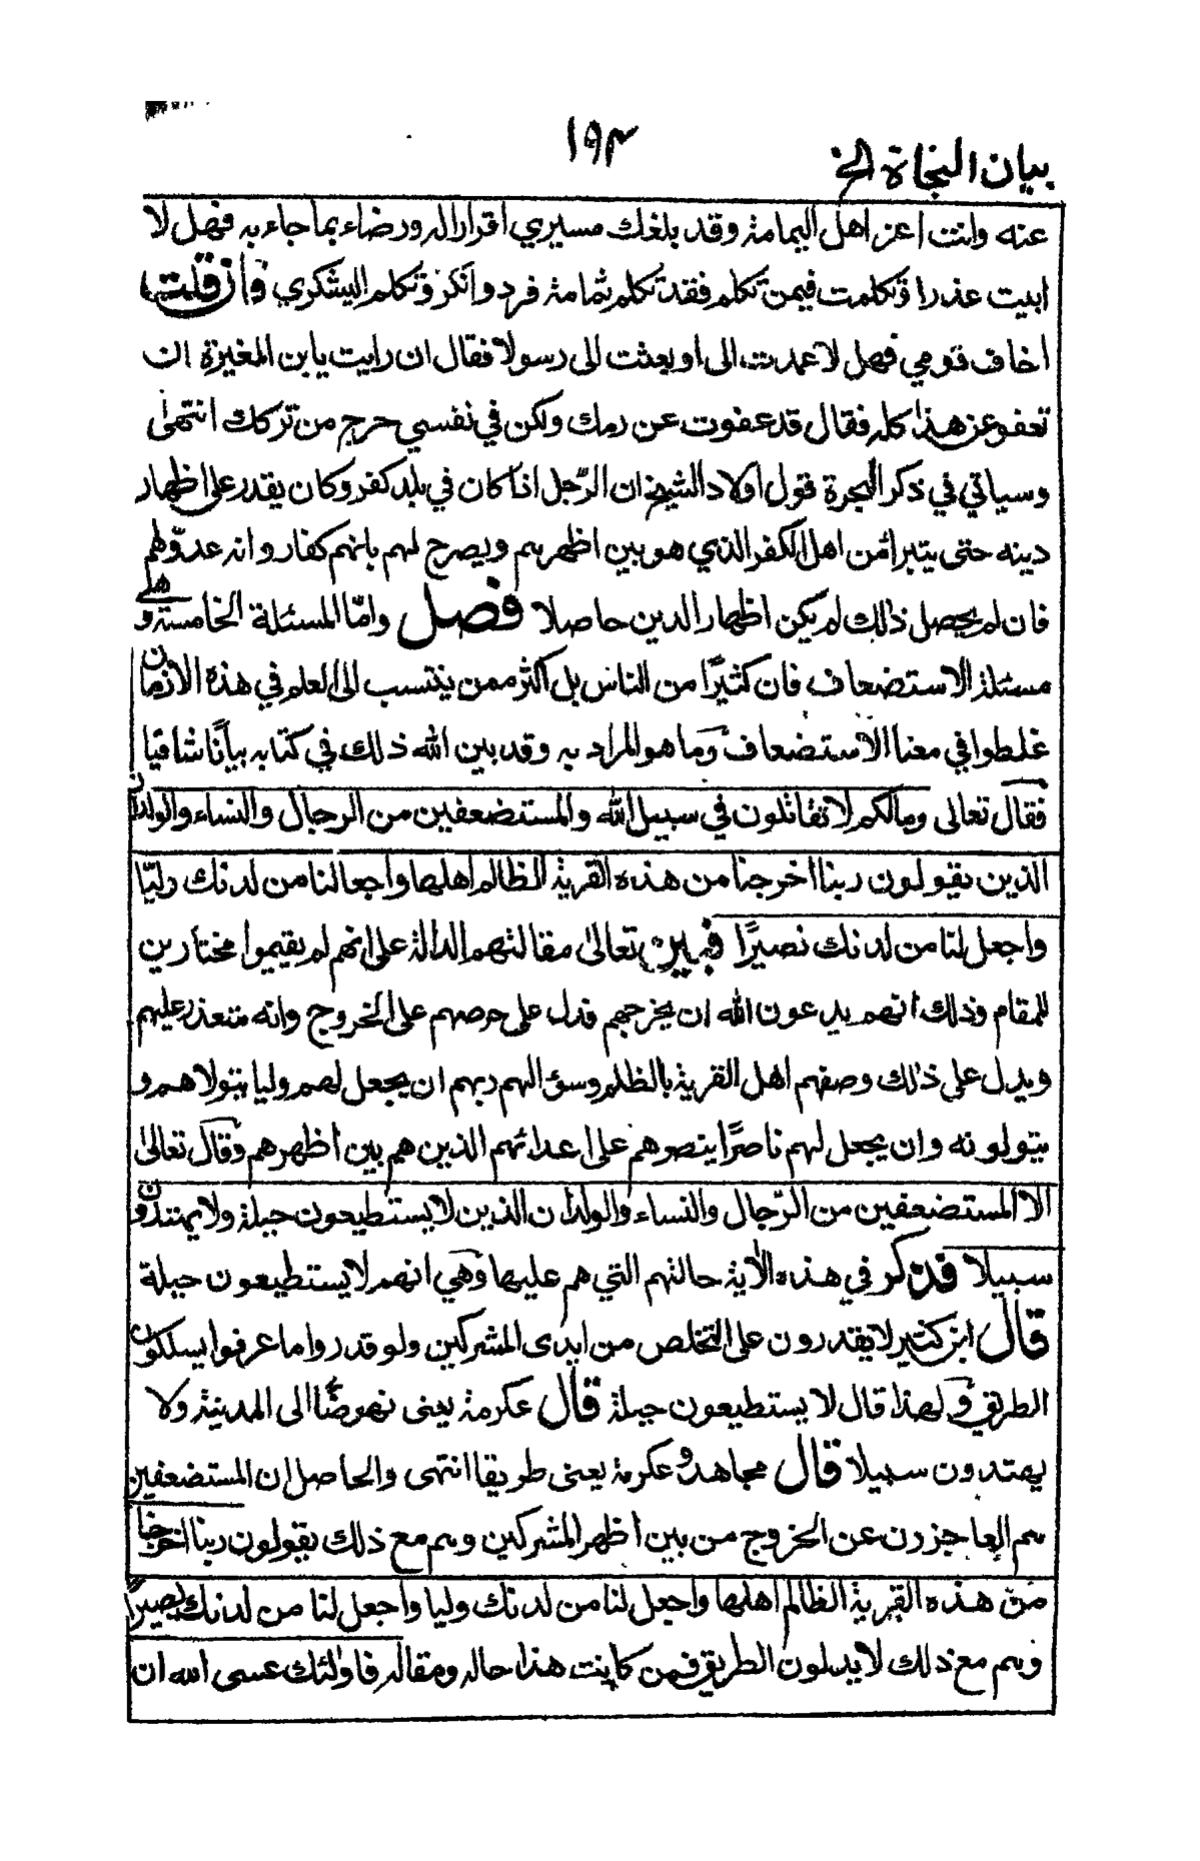 ١٩٣
بيان النجاة الخ
عنه وانت اعز اهل اليمامة وقد بلغك مسيري اقرارا له ورضاء بما جاء به فهل لا
ابيت عذرا وتكلمت فيمن تكلم فقد تكلم ثمامة فرد وانكر وتكلم اليشكري وان قلت
اخاف قومي فهل لا عمدت الى او بعثت الى رسولا فقال ان رايت يا بن المغيرة ان
تعفو عن هذا كله فقال قد عفوت عن دمك ولكن في نفسي حرج من تركك انتهى
وسياتي في ذكر الهجرة قول اولاد الشيخ ان الرّجل اذا كان في بلد كفر وكان يقدر على اظهار
دينه حتى يتبرا من اهل الكفر الذي هو بين اظهرهم ويصرح لهم بانهم كفار وانه عدوّ لهم
فان لم يحصل ذلك لم يكن اظهار الدين حاصلا فصل وامّا المسئلة الخامسة وهي
مسئلة الاستضعاف فان كثيرًا من الناس بل اكثر ممن ينتسب الى العلم في هذه الازمان
غلطوا في معنا الاستضعاف وما هو المراد به وقد بين الله ذلك في كتابه بيانًا شافيا
فقال تعالى وما لكم لا تقاتلون في سبيل الله والمستضعفين من الرجال والنساء والولدان
الذين يقولون ربنا اخرجنا من هذه القرية الظالم اهلها واجعل لنا من لدنك وليّا
واجعل لنا من لدنك نصيرًا فبين تعالى مقالتهم الدالة على انهم لم يقيموا مختارين
للمقام وذلك انهم يدعون الله ان يخرجهم فدل على حرصهم على الخروج وانه متعذر عليهم
ويدل على ذلك وصفهم اهل القرية بالظلم وسؤالهم ربهم ان يجعل لهم وليا يتولاهم و
يتولونه وان يجعل لهم ناصرًا ينصرهم على اعدائهم الذين هم بين اظهرهم وقال تعالى
الا المستضعفين من الرّجال والنساء والولدان الذين لا يستطيعون حيلة ولا يهتدون
سبيلا فذكر في هذه الاية حالتهم التي هم عليها وهي انهم لا يستطيعون حيلة
قال ابن كثير لا يقدرون على التخلص من ايدى المشركين ولو قدروا ما عرفوا يسلكون
الطريق ولهذا قال لا يستطيعون حيلة قال عكرمة يعنى نهوضًا الى المدينة ولا
يهتدون سبيلا قال مجاهد وعكرمة يعنى طريقا انتهى والحاصل ان المستضعفين
هم العاجزون عن الخروج من بين اظهر المشركين وهم مع ذلك يقولون ربنا اخرجنا
من هذه القرية الظالم اهلها واجعل لنا من لدنك وليا واجعل لنا من لدنك نصيرًا
وهم مع ذلك لا يدلون الطريق فمن كانت هذا حاله ومقاله فاولئك عسى الله ان